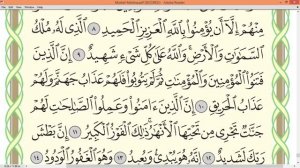 Mushaf Madinah.pdf (SECURED) - Adobe Reader
مِنْهُمْ إِلَّا أَن يُؤْمِنُوا بِاللَّهِ الْعَزِيزِ الْحَمِيدِ ۝٨ الَّذِي لَهُ مُلْكُ
السَّمَاوَاتِ وَالْأَرْضِ ۚ وَاللَّهُ عَلَىٰ كُلِّ شَيْءٍ شَهِيدٌ ۝٩ إِنَّ الَّذِينَ
فَتَنُوا الْمُؤْمِنِينَ وَالْمُؤْمِنَاتِ ثُمَّ لَمْ يَتُوبُوا فَلَهُمْ عَذَابُ جَهَنَّمَ وَلَهُمْ
عَذَابُ الْحَرِيقِ ۝١٠ إِنَّ الَّذِينَ آمَنُوا وَعَمِلُوا الصَّالِحَاتِ لَهُمْ
جَنَّاتٌ تَجْرِي مِن تَحْتِهَا الْأَنْهَارُ ۚ ذَٰلِكَ الْفَوْزُ الْكَبِيرُ ۝١١ إِنَّ بَطْشَ
رَبِّكَ لَشَدِيدٌ ۝١٢ إِنَّهُ هُوَ يُبْدِئُ وَيُعِيدُ ۝١٣ وَهُوَ الْغَفُورُ الْوَدُودُ ۝١٤